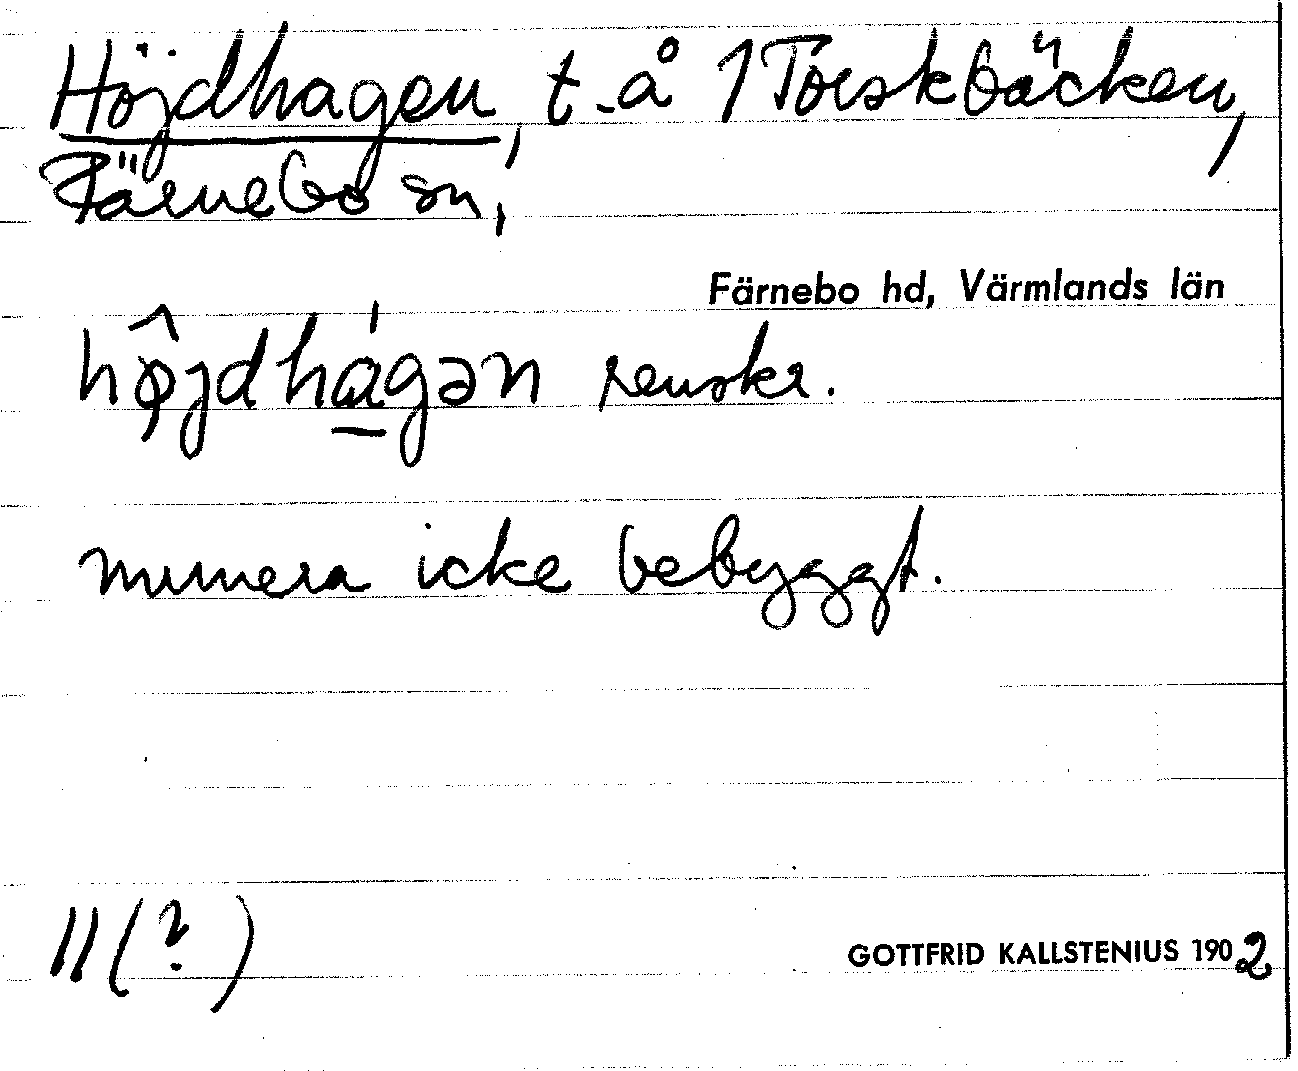 Höjdhagen, t. å 1 Torskbäcken,
Färnebo sn,
Färnebo hd, Värmlands län
hǫ̂jdhága̱gən renskr.
numera icke bebyggt.
11 (?)
GOTTFRID KALLSTENIUS 1902